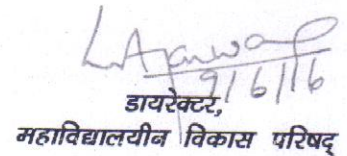 L. Agarwal
9/6/16
डायरेक्टर,
महाविद्यालयीन विकास परिषद्